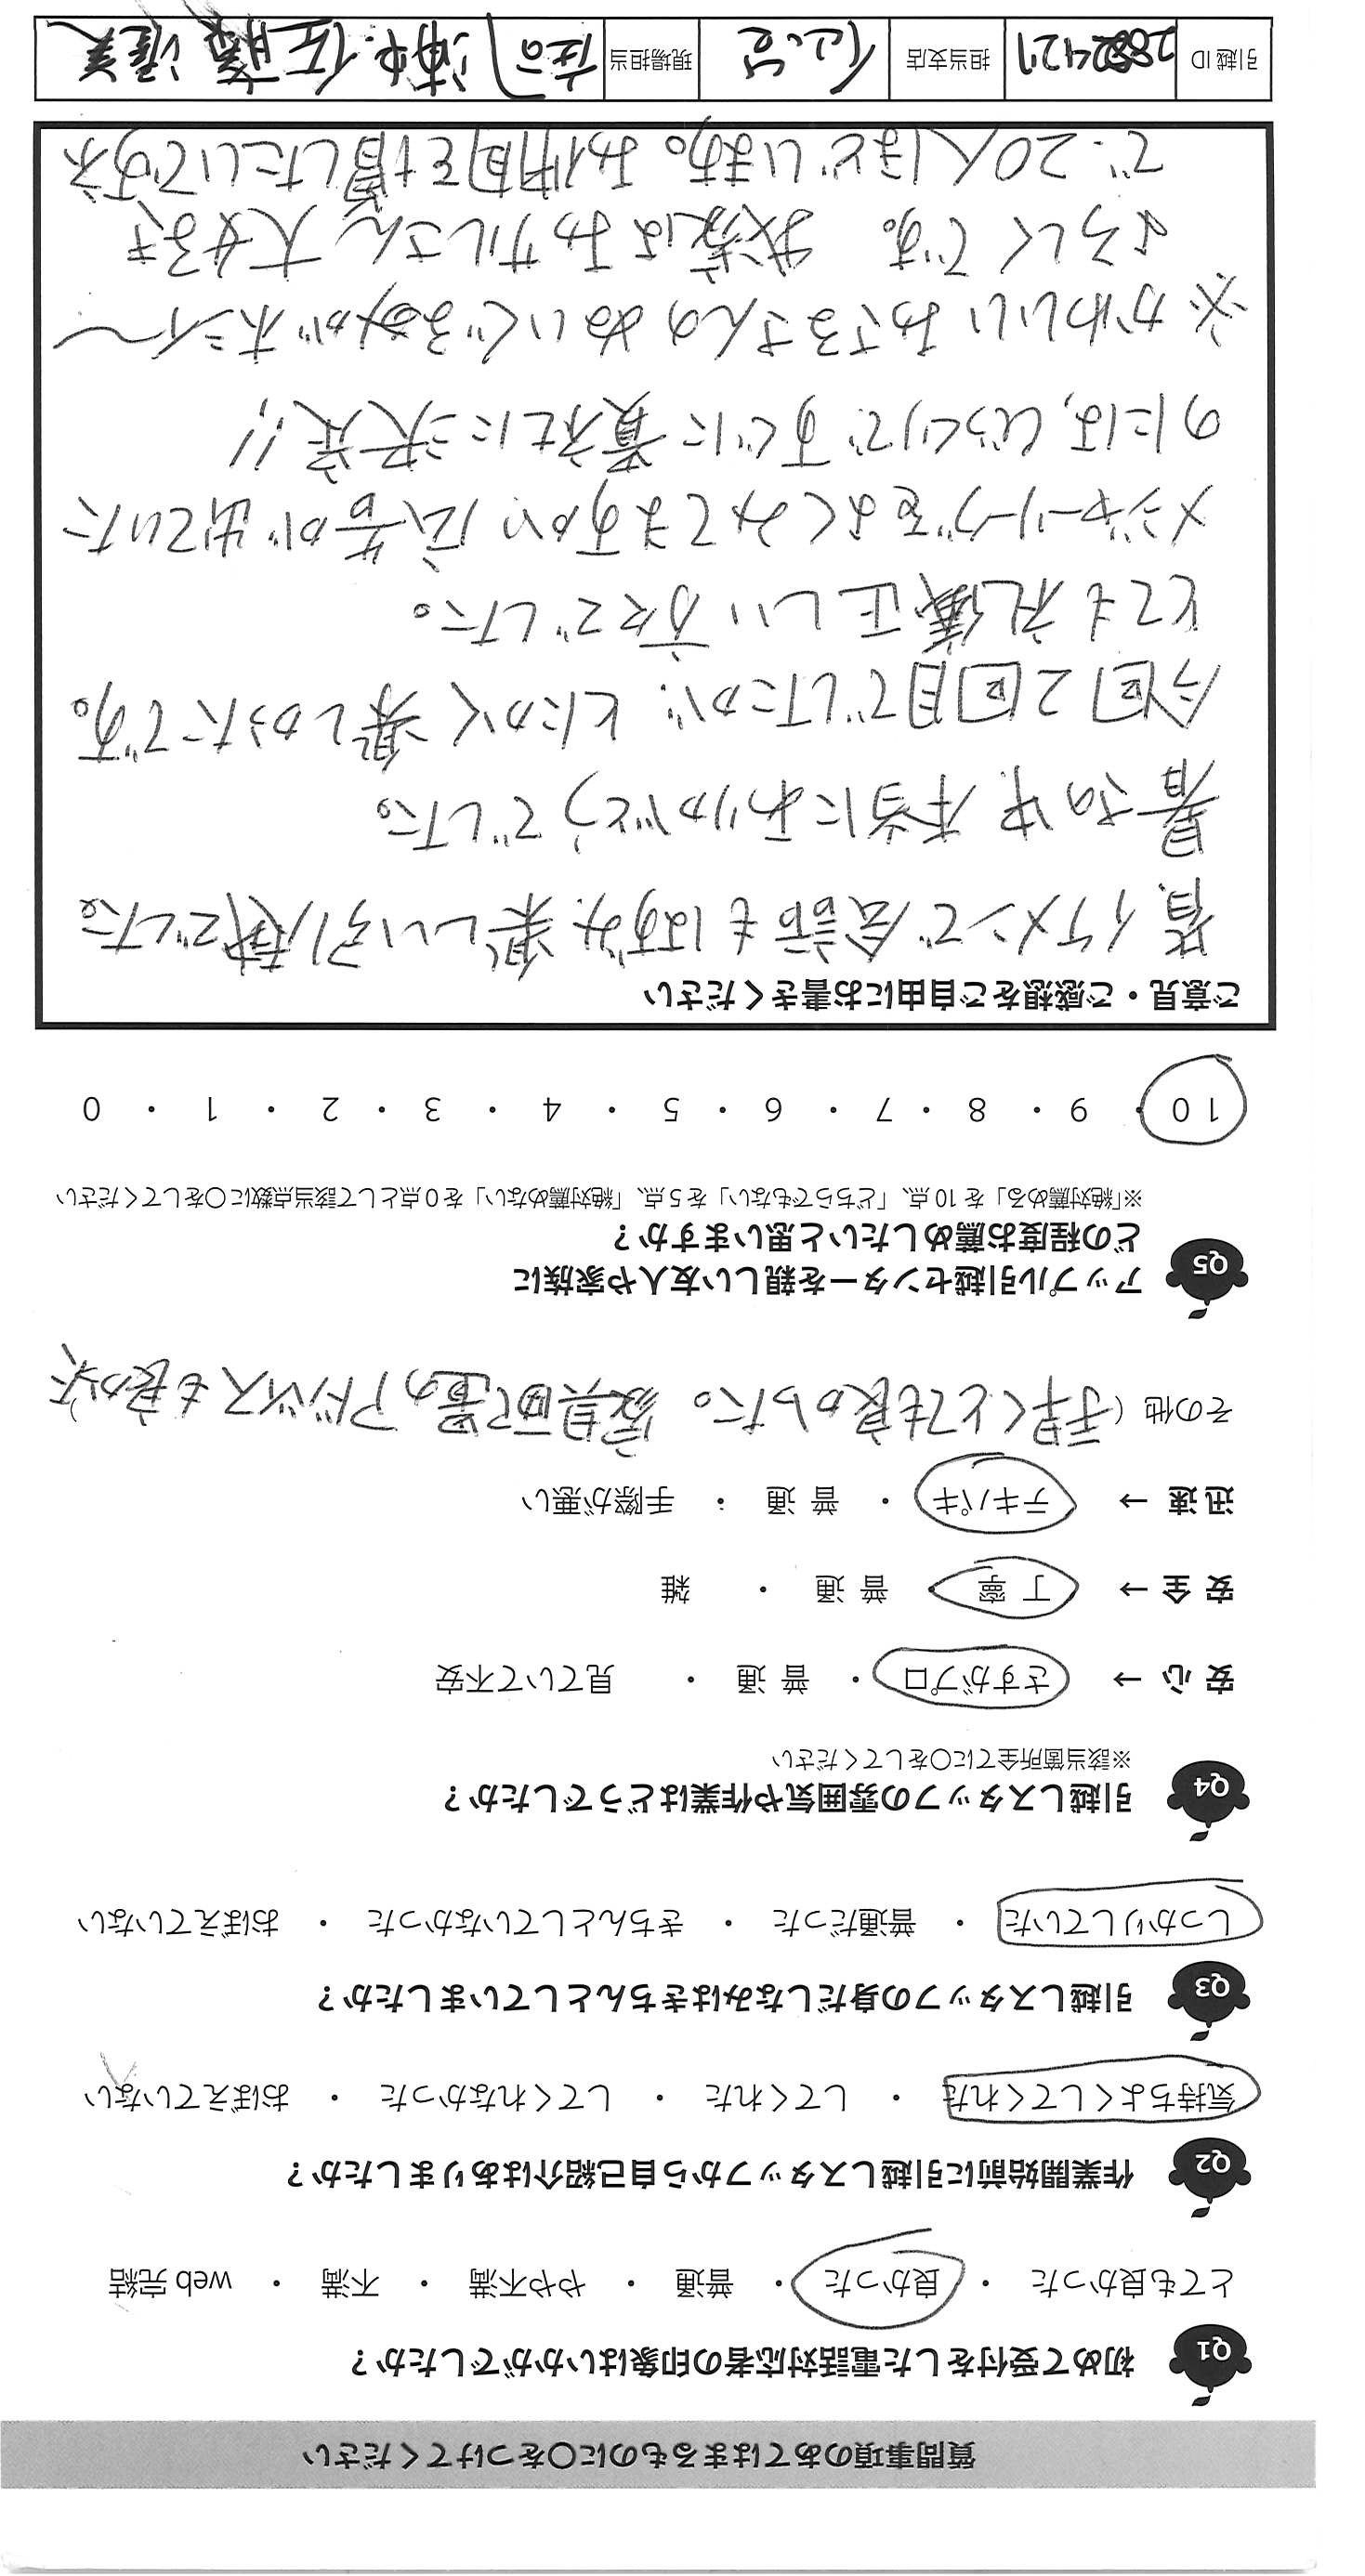 質問事項のあてはまるものに○をつけてください
Q1 初めて受付をした電話対応者の印象はいかがでしたか？
とても良かった ・ 良かった ・ 普通 ・ やや不満 ・ 不満 ・ web 完結
Q2 作業開始前に引越しスタッフから自己紹介はありましたか？
気持ちよくしてくれた ・ してくれた ・ してくれなかった ・ おぼえていない
Q3 引越しスタッフの身だしなみはきちんとしていましたか？
しっかりしていた ・ 普通だった ・ きちんとしていなかった ・ おぼえていない
Q4 引越しスタッフの雰囲気や作業はどうでしたか？
※該当箇所全てに○をしてください
安 心 → さすがプロ ・ 普 通 ・ 見ていて不安
安 全 → 丁 寧 ・ 普 通 ・ 雑
迅 速 → テキパキ ・ 普 通 ・ 手際が悪い
その他（手早くとても良かった。家具配置のアドバイスも良かった
Q5 アップル引越センターを親しい友人や家族に
どの程度お薦めしたいと思いますか？
※「絶対薦める」を 10 点、「どちらでもない」を 5 点、「絶対薦めない」を 0 点として該当点数に○をしてください
10 ・ 9 ・ 8 ・ 7 ・ 6 ・ 5 ・ 4 ・ 3 ・ 2 ・ 1 ・ 0
ご意見・ご感想をご自由にお書きください
皆イケメンで会話もはずみ楽しい引越でした。
暑の中本当にありがとうでした。
今回2回目でしたが、とにかく楽しかたです。
とても礼儀正しい方々でした。
メジャーリーグをよくみてますが、広告が出ていた
のには、びっくりですぐに貴社に決定!!
※かわいいおさるさんのぬいぐるみがホシイ〜
よろしくです。 我家はおサルさん大好き
で20人ほどいます。お仲間を増したいですネ
引越 ID 担当支店 仙台 現場担当 庄司 佐藤